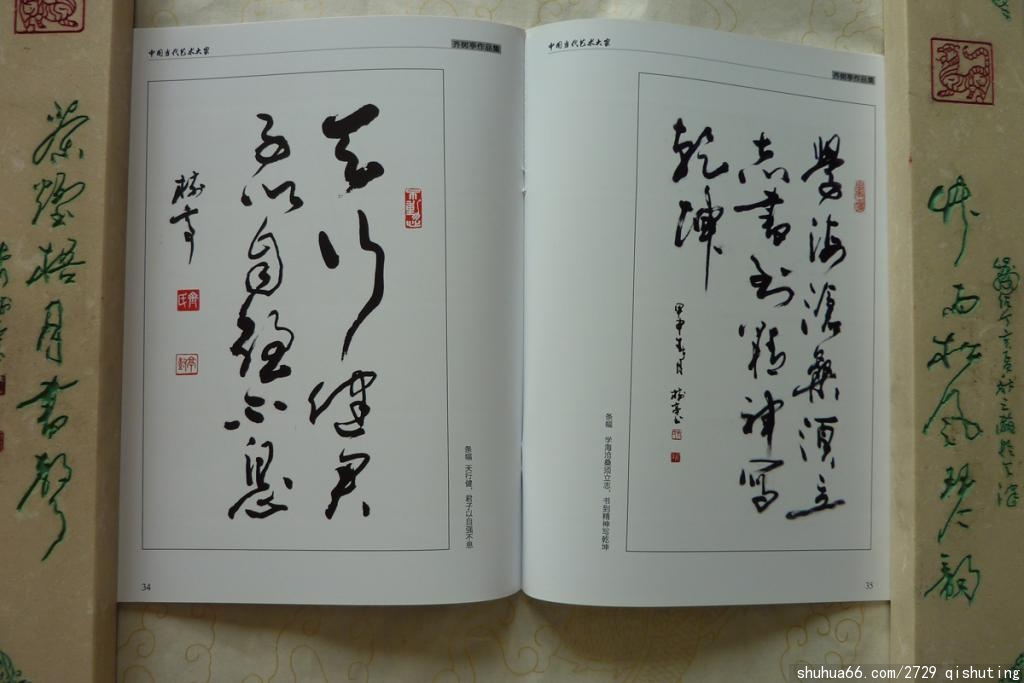 中国当代艺术大家
齐树亭作品集
天行健君
子以自强不息
树亭
条幅 天行健,君子以自强不息
34
中国当代艺术大家
齐树亭作品集
學海滄桑須立
志書到精神写
乾坤
甲申春月 树亭
条幅 学海沧桑须立志,书到精神写乾坤
35
茶烟梧月書聲
竹雨松风琴韵
shuhua66.com/2729 qishuting